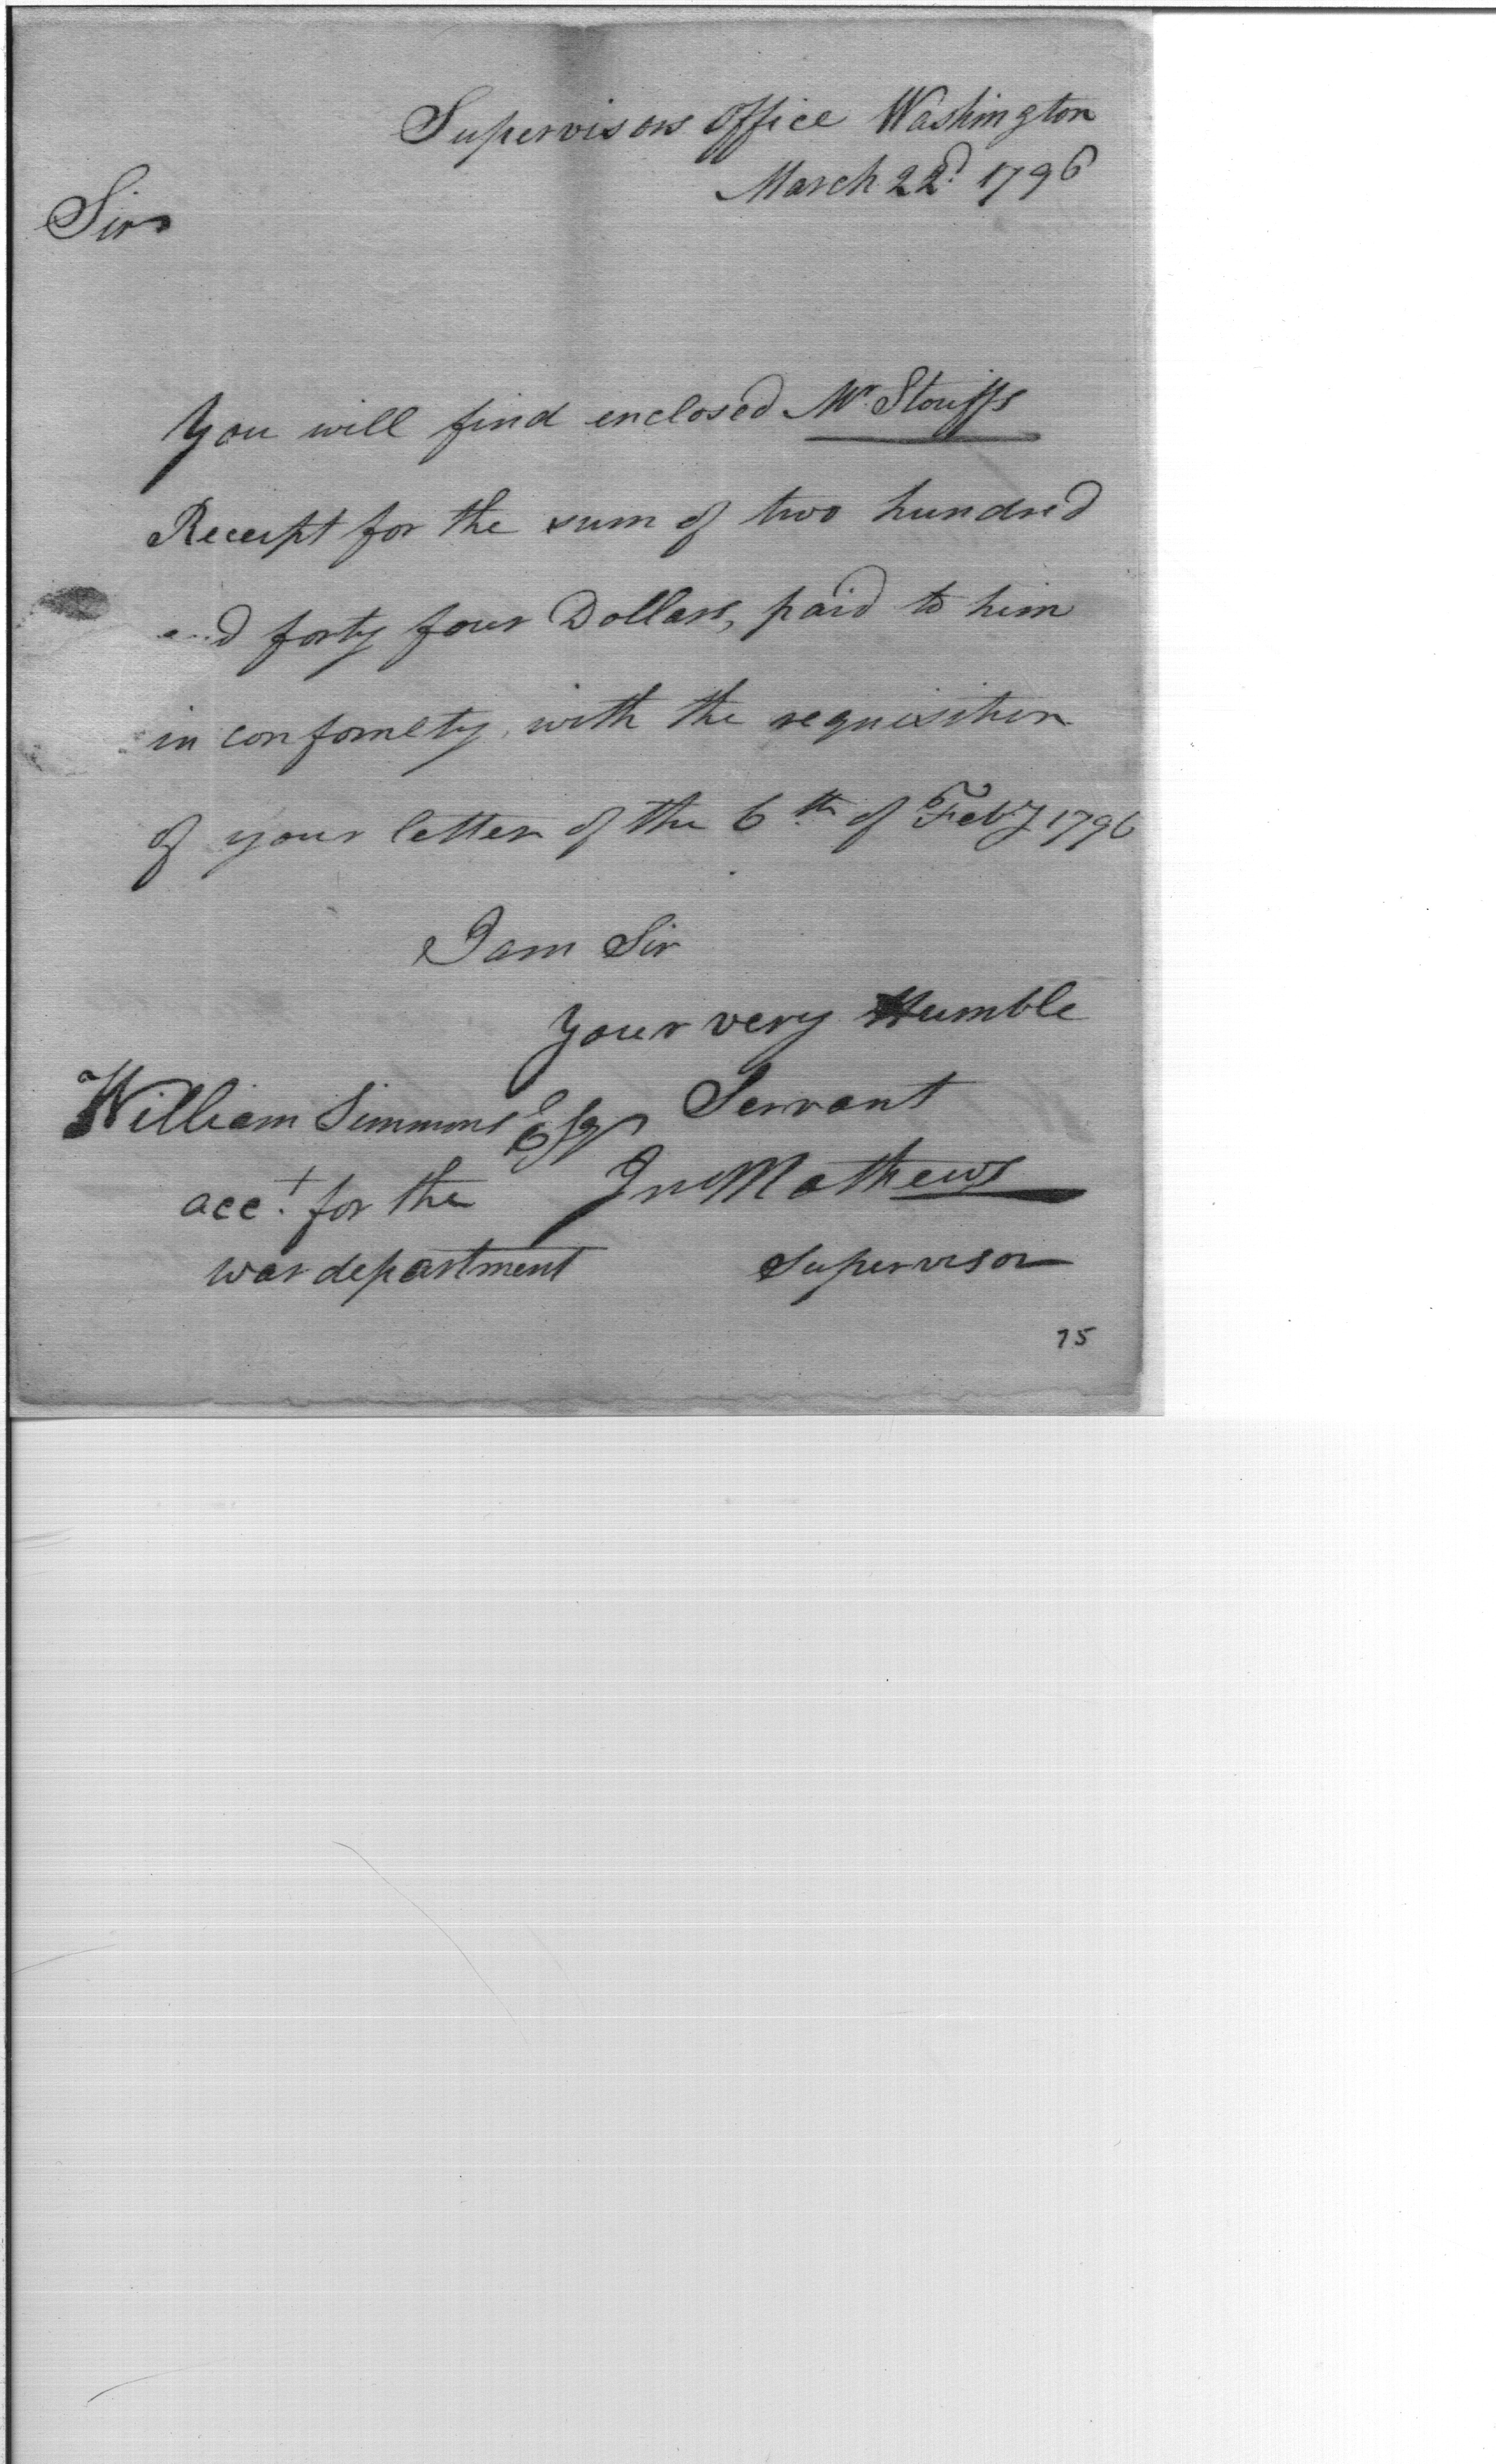 Supervisors Office Washington
March 22d. 1796
Sir
You will find enclosed Mr. Stouffs
Receipt for the sum of two hundred
and forty four Dollars, paid to him
in confomety, with the requisition
of your letter of the 6th of Feby 1796
I am Sir
Your very Humble
Servant
William Simmons Esqr
acct. for the
war department
Jno Mathews
Supervisor
75